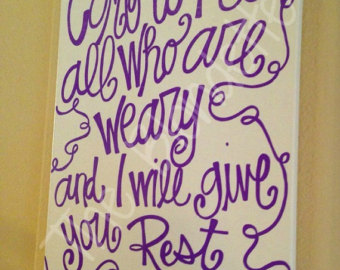 Come to Me
all who are
weary
and I will give
you Rest